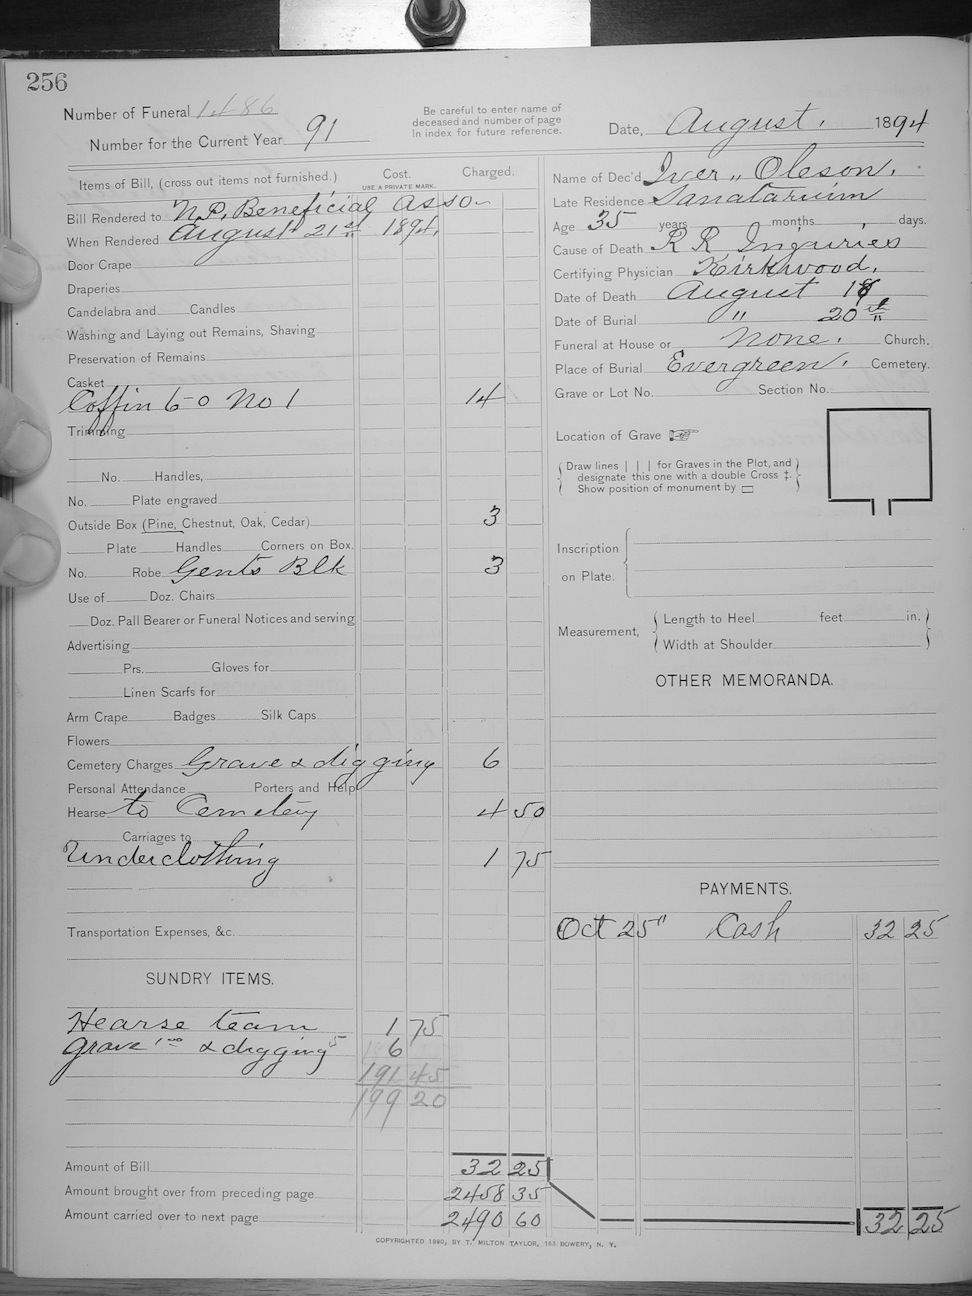 256
Number of Funeral 1486
Number for the Current Year 91
Be careful to enter name of
deceased and number of page
in index for future reference.
Date, August. 1894
Items of Bill, (cross out items not furnished.) Cost. Charged.
USE A PRIVATE MARK.
Bill Rendered to N.P. Beneficial Asso-
When Rendered August 21st 1894.
Door Crape
Draperies
Candelabra and Candles
Washing and Laying out Remains, Shaving
Preservation of Remains
Casket
Coffin 6-0 No 1 14
Trimming
No. Handles,
No. Plate engraved
Outside Box (Pine, Chestnut, Oak, Cedar) 3
Plate Handles Corners on Box.
No. Robe Gents Blk 3
Use of Doz. Chairs
Doz. Pall Bearer or Funeral Notices and serving
Advertising
Prs. Gloves for
Linen Scarfs for
Arm Crape Badges Silk Caps
Flowers
Cemetery Charges Grave & digging 6
Personal Attendance Porters and Help
Hearse to Cemetery 4 50
Carriages to
Underclothing 1 75
Transportation Expenses, &c.
SUNDRY ITEMS.
Hearse team 1 75
Grave & digging 6
191 45
199 20
Amount of Bill 32 25
Amount brought over from preceding page 2458 35
Amount carried over to next page 2490 60
Name of Dec'd Iver „ Oleson.
Late Residence Sanatarium
Age 35 years months days.
Cause of Death R R Injuries
Certifying Physician Kirkwood.
Date of Death August
Date of Burial " 20th
Funeral at House or None. Church.
Place of Burial Evergreen. Cemetery.
Grave or Lot No. Section No.
Location of Grave
Draw lines | | | for Graves in the Plot, and
designate this one with a double Cross ‡.
Show position of monument by ▭
Inscription
on Plate.
Measurement, Length to Heel feet in.
Width at Shoulder
OTHER MEMORANDA.
PAYMENTS.
Oct 25" Cash 32 25
32 25
COPYRIGHTED 1890, BY T. MILTON TAYLOR, 163 BOWERY, N. Y.